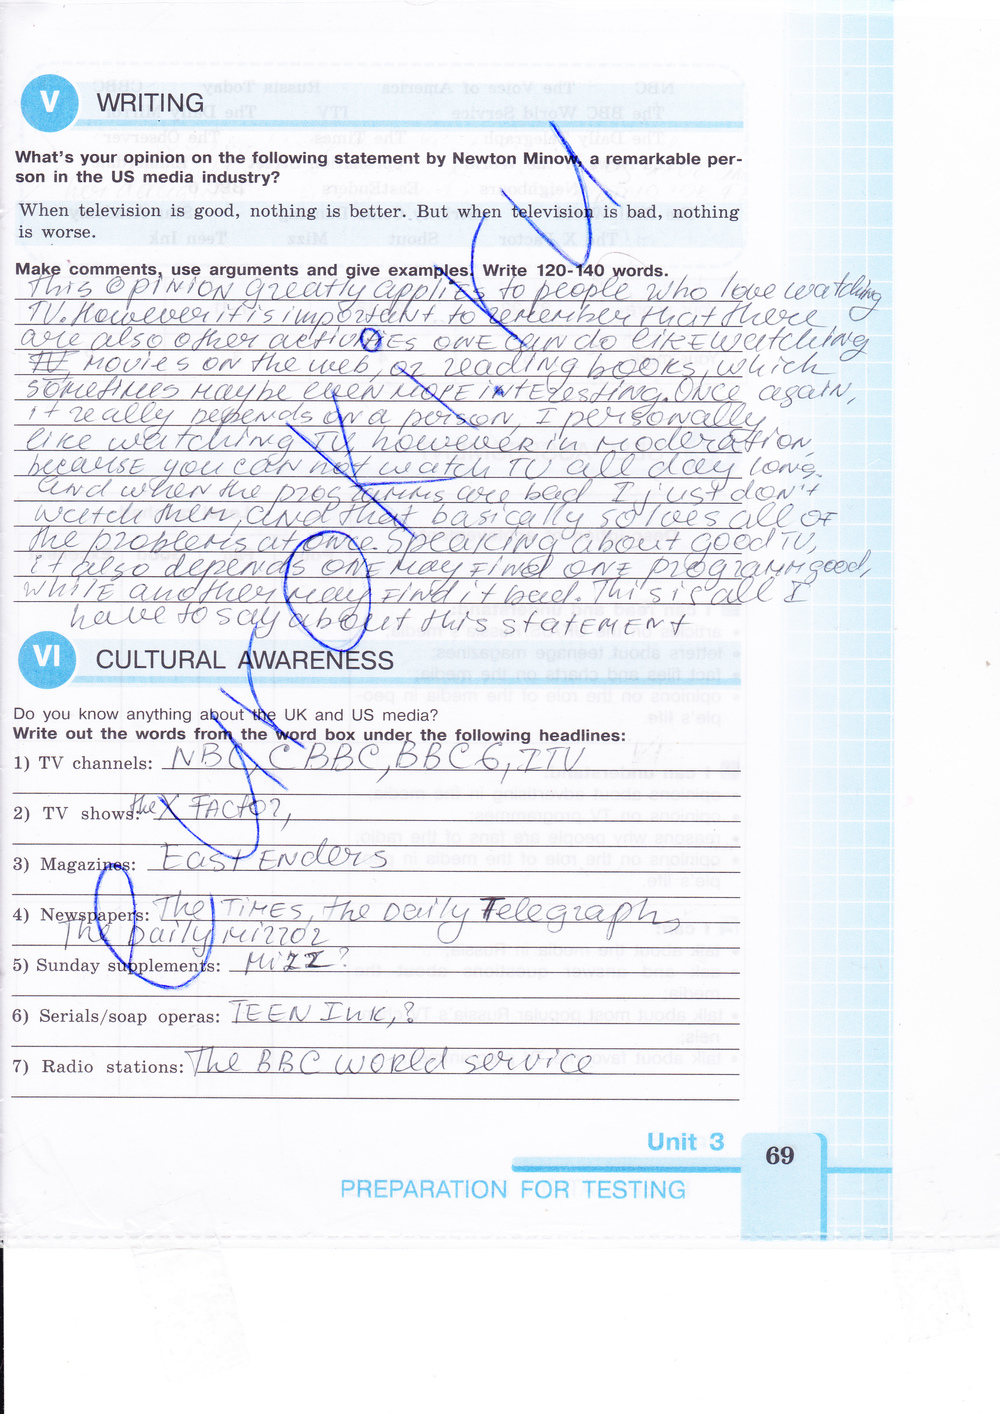 V WRITING
What's your opinion on the following statement by Newton Minow, a remarkable per-
son in the US media industry?
When television is good, nothing is better. But when television is bad, nothing
is worse.
Make comments, use arguments and give examples. Write 120-140 words.
This opinion greatly applies to people who love watching
TV. However it is important to remember that there
are also other activities one can do like watching
TV movies on the web, or reading books, which
sometimes maybe even more interesting. Once again,
it really depends on a person, I personally
like watching TV however in moderation,
because you can not watch TV all day long.
And when the programms are bad I just don't
watch them, and that basically solves all of
the problems at once. Speaking about good TV,
it also depends one may find one programm good,
while another may find it bad. This is all I
have to say about this statement
VI CULTURAL AWARENESS
Do you know anything about the UK and US media?
Write out the words from the word box under the following headlines:
1) TV channels: NBC, CBBC, BBC6, ITV
2) TV shows: the X Factor,
3) Magazines: East Enders
4) Newspapers: The Times, the Daily Telegraph,
The Daily Mirror
5) Sunday supplements: Mizz?
6) Serials/soap operas: Teen Ink,?
7) Radio stations: The BBC world service
Unit 3
69
PREPARATION FOR TESTING
GUROKI.RU